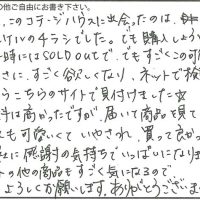 の他ご自由にお書き下さい。
、このコテージハウスと出会ったのは、
のチラシでした。でも購入しよう
時にはSOLD OUTで、でもすごくこの可
に、すごく欲しくなり、ネットで検
こちらのサイトで見付けました☆
料は高かったですが、届いて商品を見て
も可愛いくていやされ、買って良かっ
に感謝の気持ちでいっぱいになりま
の他の商品もすごく気になるので
よろしくお願いします。ありがとうございま